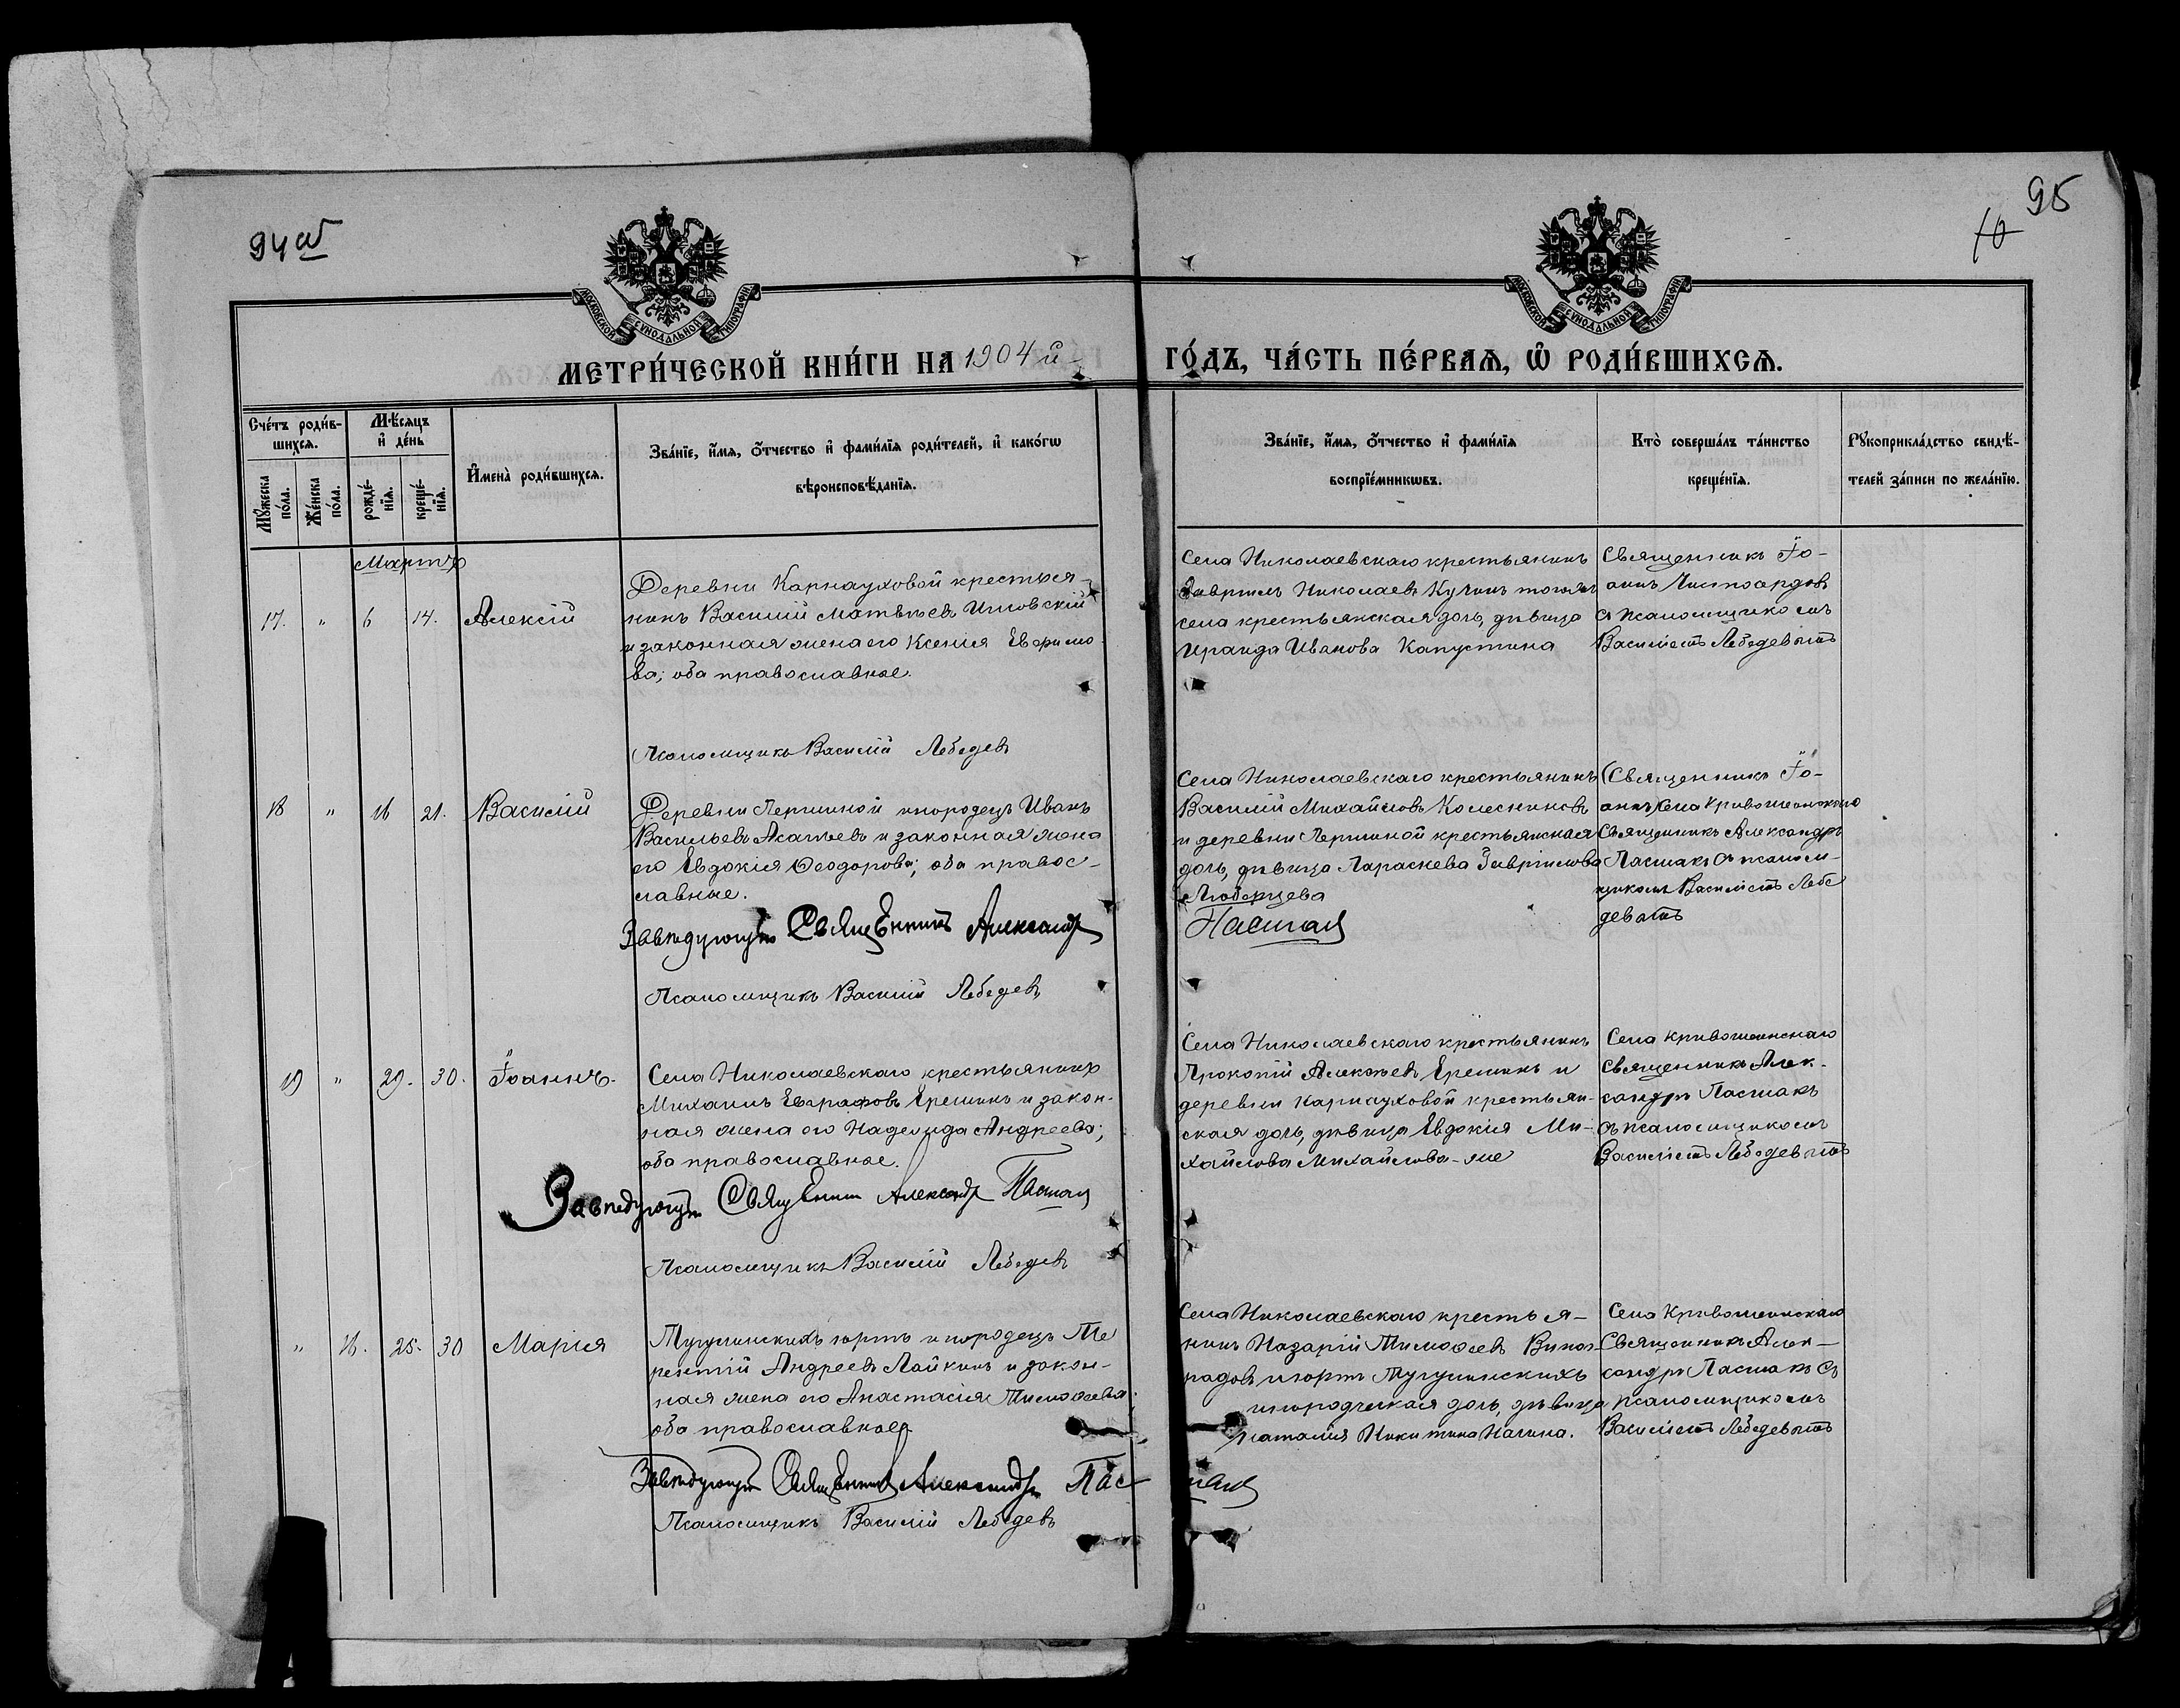 94 об
95
10
МОСКОВСКОЙ СѴНОДАЛЬНОЙ ТИПОГРАФІИ
МОСКОВСКОЙ СѴНОДАЛЬНОЙ ТИПОГРАФІИ
МЕТРИ́ЧЕСКОЙ КНИ́ГИ НА 1904 й
ГО́ДЪ, ЧА́СТЬ ПЕ́РВАѦ, Ѡ РОДИ́ВШИХСѦ.
Сче́тъ роди́в-
шихсѧ.
Мꙋ́жеска по́ла.
Же́нска по́ла.
Мѣ́сѧцъ и҆ де́нь
рожде́-нїѧ.
креще́-нїѧ.
И҆мена̀ роди́вшихсѧ.
Зва́нїе, и҆́мѧ, ѻ҆́тчество и҆ фами́лїѧ роди́телей, и҆ како́гѡ
вѣроисповѣ́данїѧ.
Зва́нїе, и҆́мѧ, ѻ҆́тчество и҆ фами́лїѧ
воспрїе́мникѡвъ.
Кто̀ соверша́лъ та́инство
креще́нїѧ.
Рꙋкоприкла́дство свидѣ́-
телей за́писи по жела́нїю.
Мартъ
17. " 6 14. Алексій
Деревни Карнауховой крестья-
нинъ Василій Матвѣевъ
и законная жена его Ксенія Ефимо-
ва; оба православные.
Псаломщикъ Василій Лебедевъ
Села Николаевскаго крестьянинъ
Гавріилъ Николаевъ того же
села крестьянская дочь, дѣвица
Ираида Иванова Капустина
Священникъ Іо-
аннъ Чистосердовъ
съ псаломщикомъ
Василіемъ Лебедевымъ
18 " 16 21. Василій
Деревни инородецъ Иванъ
Васильевъ и законная жена
его Евдокія Ѳеодорова; оба правос-
лавные.
Завѣдующій Священникъ Александръ
Пасмакъ
Псаломщикъ Василій Лебедевъ
Села Николаевскаго крестьянинъ
Василій Михайловъ Колесниковъ
и деревни крестьянская
дочь, дѣвица Параскева Гавріилова
Священникъ Іо-
аннъ, Села Кривошеинскаго
Священникъ Александръ
Пасмакъ съ псалом-
щикомъ Василіемъ Лебе
девымъ
19 " 29. 30. Іоаннъ.
Села Николаевскаго крестьянинъ
Михаилъ Евграфовъ Ерешинъ и закон-
ная жена его Надежда Андреева;
оба православные.
Завѣдующій Священникъ Александръ Пасмакъ
Псаломщикъ Василій Лебедевъ
Села Николаевскаго крестьянинъ
Прокопій Алексѣевъ Ерешинъ и
деревни Карнауховой крестьян-
ская дочь, дѣвица Евдокія Ми-
хайлова Михайлова-же
Села Кривошеинскаго
Священникъ Алек-
сандръ Пасмакъ
съ псаломщикомъ
Василіемъ Лебедевымъ
" 16. 25. 30 Марія
юртъ инородецъ Те
рентій Андреевъ Лайкинъ и закон-
ная жена его Анастасія Тимоѳеева;
оба православные.
Завѣдующій Священникъ Александръ Пасмакъ
Псаломщикъ Василій Лебедевъ
Села Николаевскаго крестья-
нинъ Назарій Тимоѳеевъ Виног-
радовъ и юртъ
инородческая дочь, дѣвица
Наталія Никитина
Села Кривошеинскаго
Священникъ Алек-
сандръ Пасмакъ съ
псаломщикомъ
Василіемъ Лебедевымъ